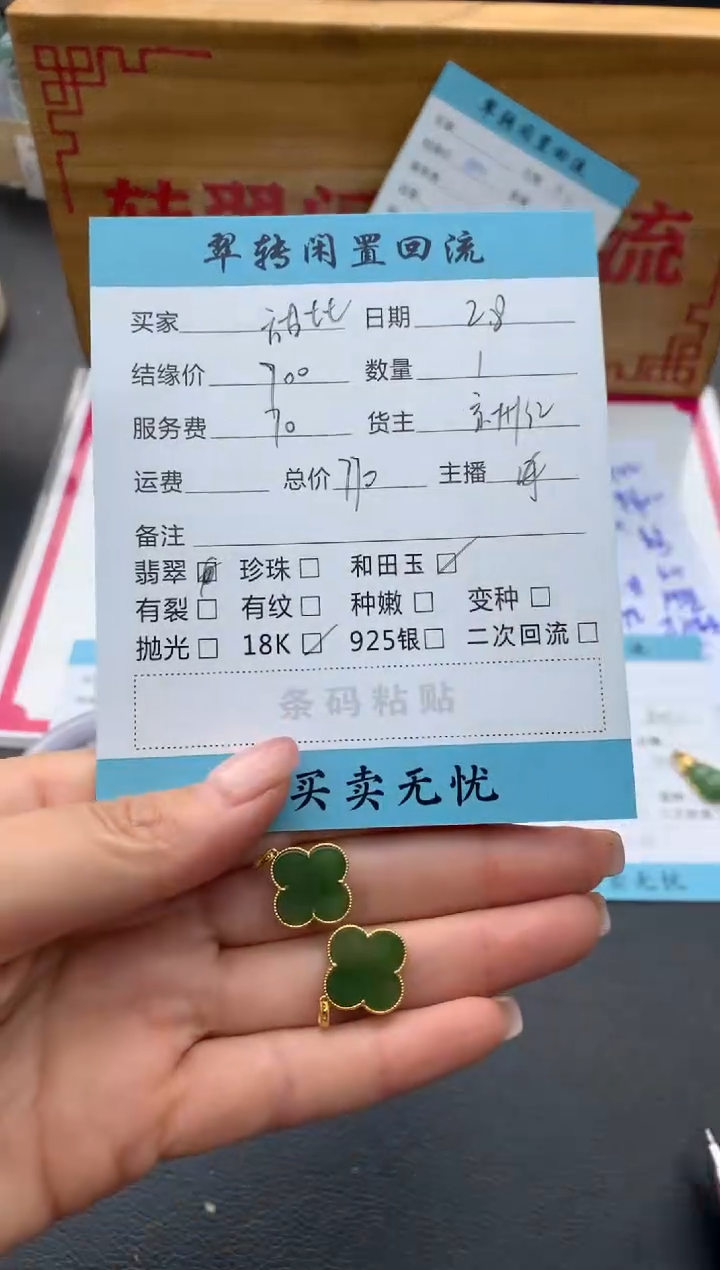 翠转闲置回流
买家 日期 2.8
结缘价 700 数量 1
服务费 70 货主
运费 总价 770 主播
备注
翡翠 珍珠 和田玉
有裂 有纹 种嫩 变种
抛光 18K 925银 二次回流
条码粘贴
买卖无忧